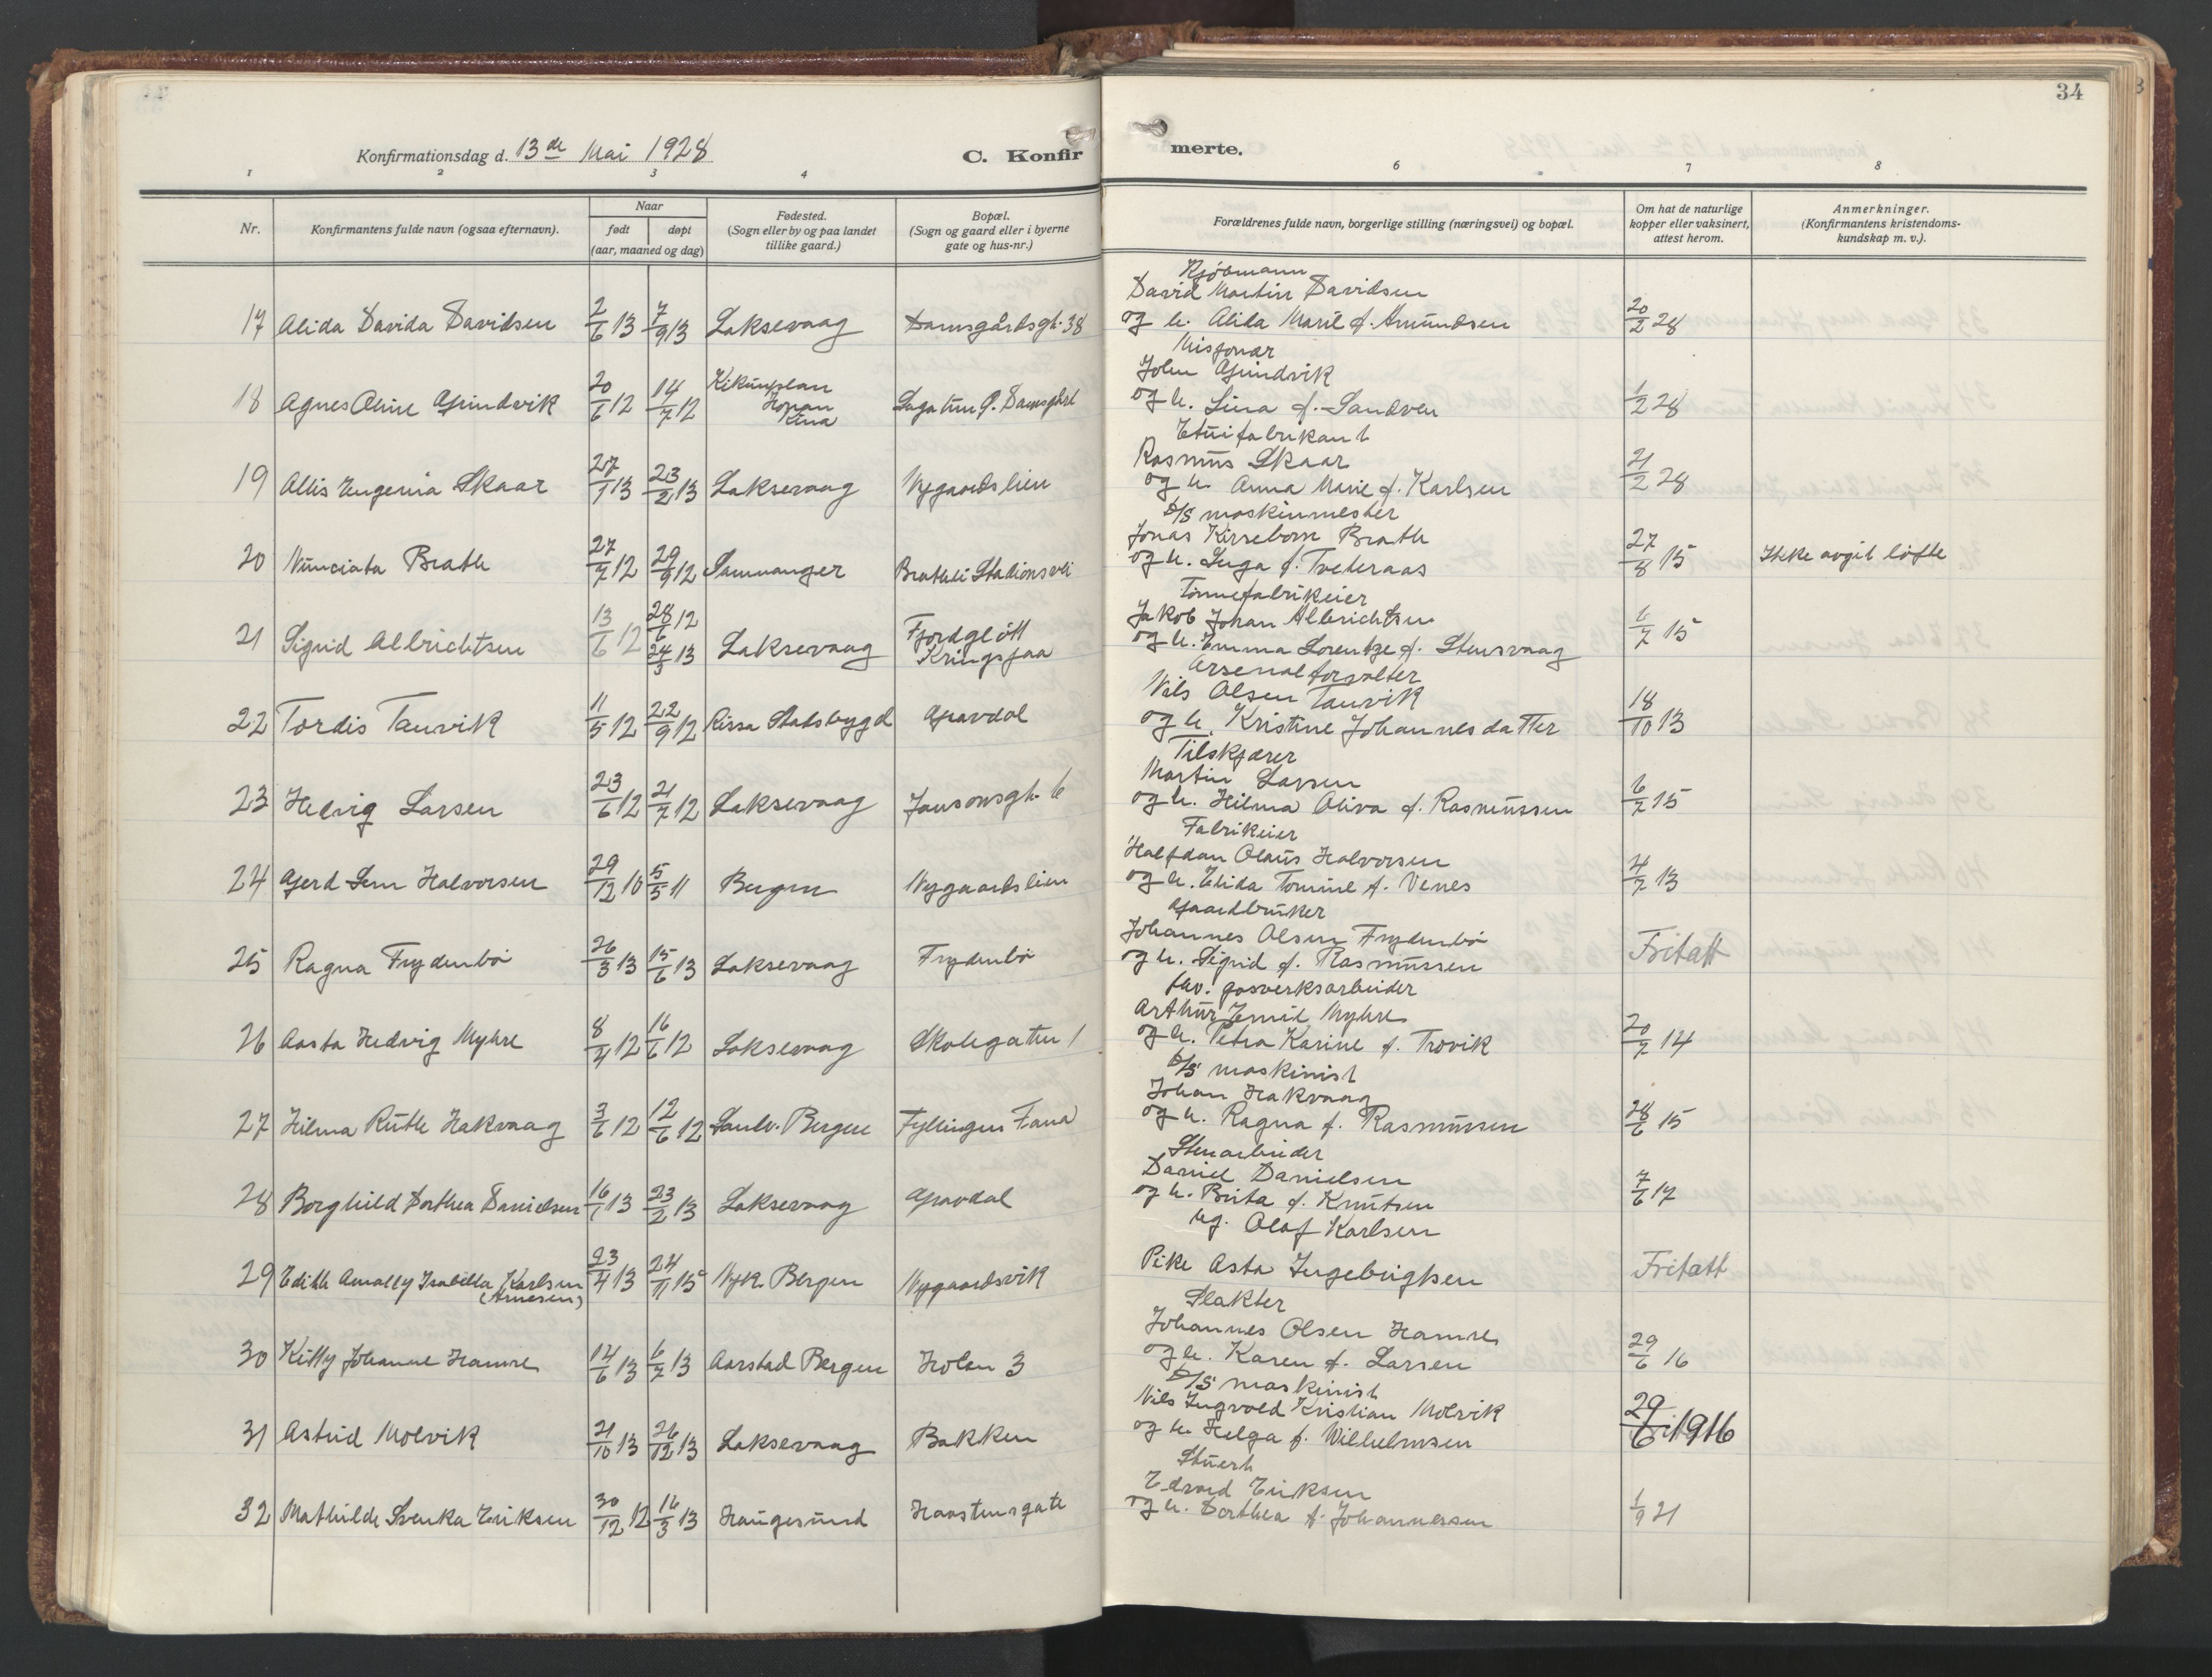 34
Konfirmationsdag d. 13de Mai 1928
C. Konfirmerte.
1 2 3 4 6 7 8
Nr.
Konfirmantens fulde navn (ogsaa efternavn).
Naar
født døpt
(aar, maaned og dag)
Fødested.
(Sogn eller by og paa landet
tillike gaard.)
Bopæl.
(Sogn og gaard eller i byerne
gate og hus-nr.)
Forældrenes fulde navn, borgerlige stilling (næringsvei) og bopæl.
Om hat de naturlige
kopper eller vaksinert,
attest herom.
Anmerkninger.
(Konfirmantens kristendoms-
kundskap m. v.).
Kjøbmann
David Martin Davidsen
17 Alida Davida Davidsen 2/6 13 7/9 13 Laksevaag Damsgårdsgt. 38 og h. Alida Marie f. Amundsen 20/2 28
Misjonær
John Grindvik
18 Agnes Oline Grindvik 20/6 12 14/7 12 Kikungshan Honan Kina og h. Lina f. Sandven 1/2 28
Etuifabrikant
Rasmus Skaar
19 Allis Eugenia Skaar 27/1 13 23/2 13 Laksevaag Nygaardslien og h. Anna Marie f. Karlsen 21/2 28
D/S maskinmester
Jonas Kirsebom Brath
20 Nunciata Brath 27/7 12 29/9 12 Samnanger Brathli Stationsvei og h. Inga f. Tveteraas 27/8 15 Ikke avgit løfte
Tønnefabrikeier
Jakob Johan Albrichtsen
21 Sigrid Albrichtsen 13/6 12 28/6 12 24/3 13 Laksevaag Fjordgløtt Kringsjaa og h. Emma Lorentze f. Stensvaag 6/7 15
Arsenalforvalter
Nils Olsen Tanvik
22 Tordis Tanvik 11/5 12 22/9 12 Rissa Stadsbygd Gravdal og h. Kristine Johannesdatter 18/10 13
Tilskjærer
Martin Larsen
23 Hedvig Larsen 23/6 12 21/7 12 Laksevaag Jansonsgt. 6 og h. Hilma Oliva f. Rasmussen 6/7 15
Fabrikeier
Halfdan Olaus Halvorsen
24 Gjerd Lem Halvorsen 29/12 10 5/5 11 Bergen Nygaardslien og h. Elida Tomine f. Venes 4/7 13
Gaardbruker
Johannes Olsen Frydenbø
25 Ragna Frydenbø 26/3 13 15/6 13 Laksevaag Frydenbø og h. Sigrid f. Rasmussen Fritatt
fhv. gasverksarbeider
Arthur Emil Myhre
26 Aasta Hedvig Myhre 8/4 12 16/6 12 Laksevaag Skolegaten 1 og h. Petra Karine f. Trovik 20/7 14
D/S maskinist
Johan Hakvaag
27 Hilma Ruth Hakvaag 3/6 12 12/6 12 Sandv. Bergen Fyllingen Fana og h. Ragna f. Rasmussen 28/6 15
Stenarbeider
Daniel Danielsen
28 Borghild Dorthea Danielsen 16/1 13 23/2 13 Laksevaag Gravdal og h. Brita f. Knutsen 7/6 17
Ug. Olaf Karlsen
29 Edith Amally Isabella Karlsen (Arnesen) 23/4 13 24/11 15 Nyk. Bergen Nygaardsvik Pike Asta Ingebrigtsen Fritatt
Slakter
Johannes Olsen Hamre
30 Killy Johanne Hamre 14/6 13 6/7 13 Aarstad Bergen Holen 3 og h. Karen f. Larsen 29/6 16
D/S maskinist
Nils Ingvold Kristian Molvik
31 Astrid Molvik 21/10 13 26/12 13 Laksevaag Bakken og h. Helga f. Wilhelmsen 29/6 1916
Stuert
Edvard Eriksen
32 Mathilde Svenka Eriksen 30/12 12 16/3 13 Haugesund Haastensgate og h. Dorthea f. Johannessen 1/9 21